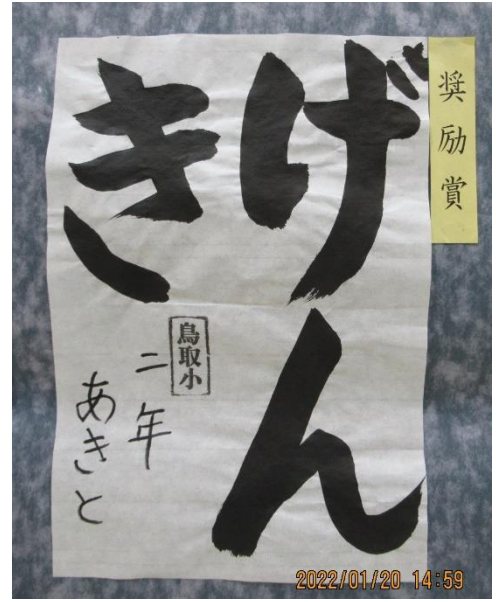 奨励賞
げん
き
鳥取小
二年
あきと
2022/01/20 14:59